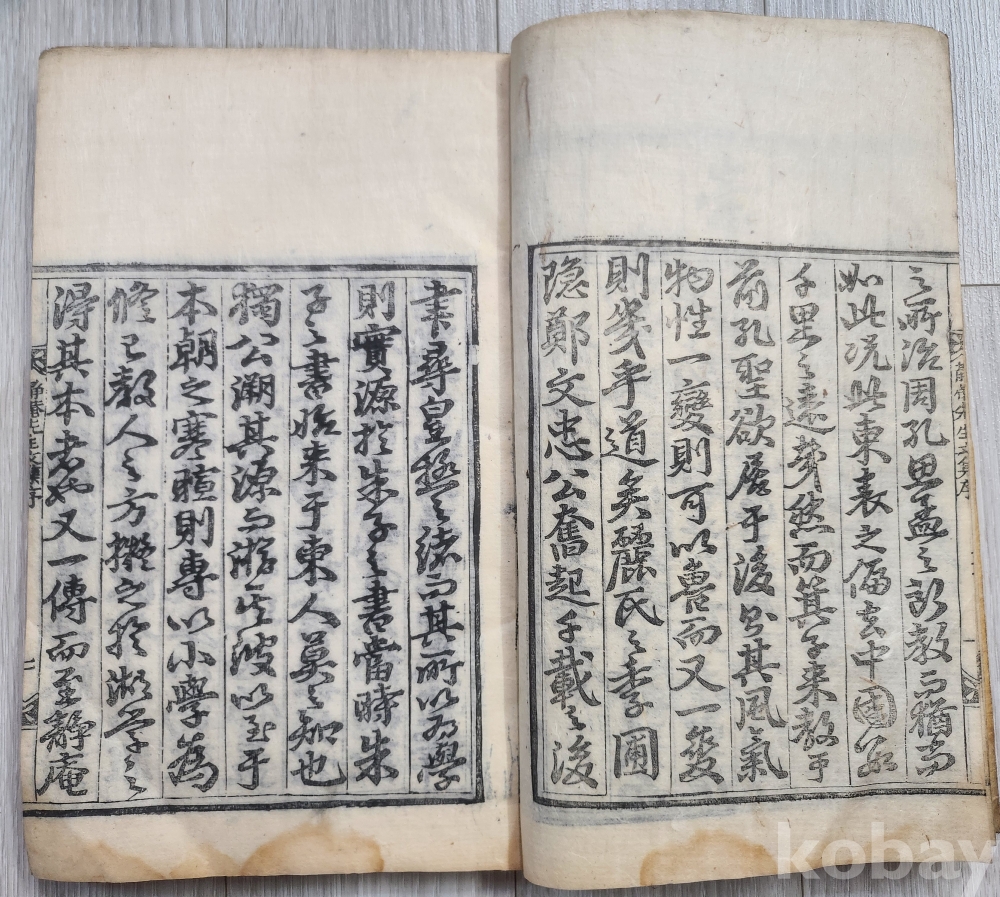 靜菴先生文集序
之所治周孔思孟之設教而猶尚
如此况此東表之偏去中國
千里之遠夐然而箕子来教于
前孔聖欲居于後豈其風氣
物性一變則可以魯而又一變
則幾乎道矣麗氏之季圃
隐鄭文忠公奮起千載之後
書尋皇極之緒而其所以為學
則實源於朱子之書當時朱
子之書始来于東人莫之知也
獨公溯其源而游其波以至于
本朝之寒暄則專以小學為
修己教人之方擬之於湖學之
得其本者也又一傳而至靜庵
靜菴先生文集序
二
kobay